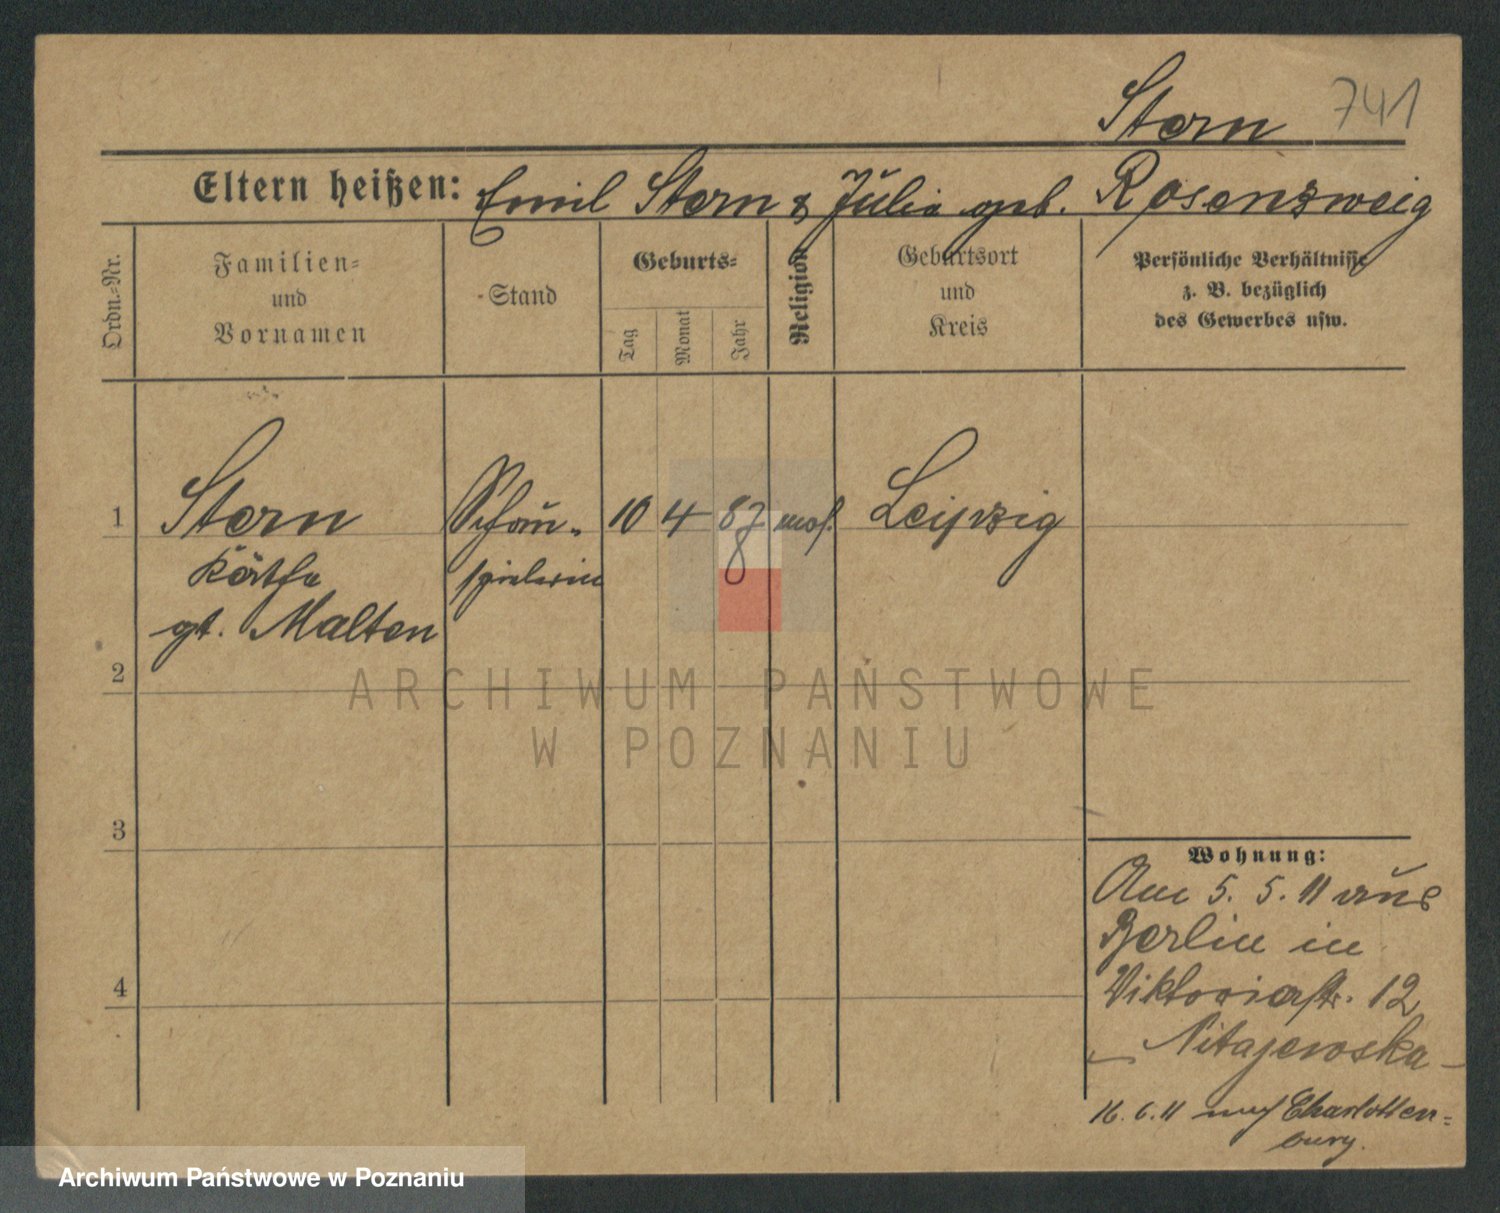 Stern 741
Eltern heißen: Emil Stern & Julia geb. Rosenzweig
Ordn.-Nr.
Familien-
und
Vornamen
Stand
Geburts-
Tag
Monat
Jahr
Religion
Geburtsort
und
Kreis
Persönliche Verhältnisse
z. B. bezüglich
des Gewerbes usw.
1 Stern Schau- 10 4 87 mos. Leipzig
Käthe spielerin
gt. Malten
2
ARCHIWUM PAŃSTWOWE
W POZNANIU
3
Wohnung:
Am 5. 5. 11 aus
Berlin in
4 Viktoriastr. 12
- Nitajewska -
16. 6. 11 nach Charlotten-
burg.
Archiwum Państwowe w Poznaniu